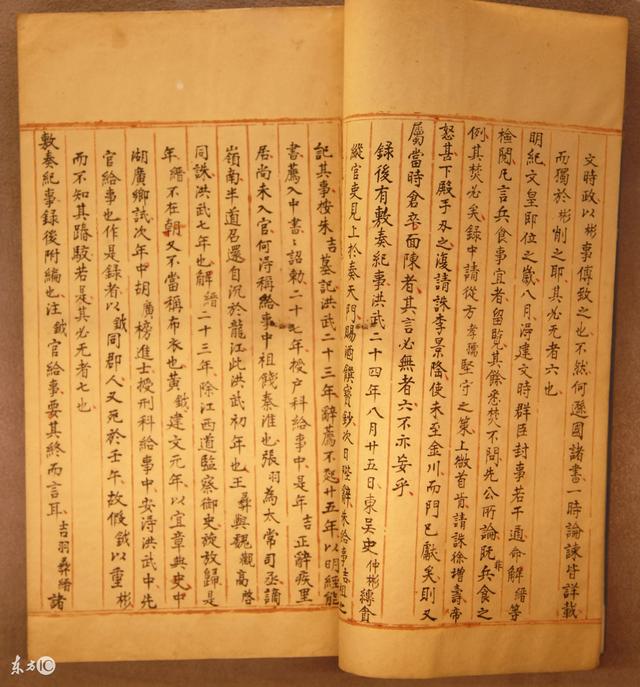 文時政以彬事傳致之也不然何遜國諸書一時論諫皆詳載
而獨於彬削之耶其必无者六也
明紀文皇即位之歲八月淂建文時群臣封事若干通命解縉等
檢閱凡言兵食事宜者留覧其餘悉焚不問先公所論既非兵食之
例其焚必矣録中請從方孝孺堅守之策上微首肯請誅徐增壽帝
怒甚下殿手刃之復請誅李景隆使未至金川而門已獻矣則又
屬當時倉卒面陳者其言必無者六不亦妄乎
録後有敷奏紀事洪武二十四年八月廿五日東吳史仲彬縛貪
縱官吏見上於奏天門賜酒饌寳鈔次日陛辭朱給事吉祖之
記其事桉朱吉墓記洪武二十三年辭薦不起廿五年以明經能
書薦入中書〻詔勅二十七年授户科給事中是年吉正辭疾里
居尚未入官何淂稱給事中祖餞秦淮也張羽為太常司丞謫
嶺南半道召還自沉於龍江此洪武初年也王彝與魏觀高啓
同誅洪武七年也解縉二十三年除江西道監察御史旋放歸是
年縉不在朝又不當稱布衣也黄鉞建文元年以宜章典史中
湖廣鄉試次年中胡廣榜進士授刑科給事中安淂洪武中先
官給事也作是録者以鉞同郡人又死於壬午故假鉞以重彬
而不知其踳駁若是其必无者七也
敷奏紀事録後附編也注鉞官給事要其終而言耳吉羽彝縉諸
东方IC